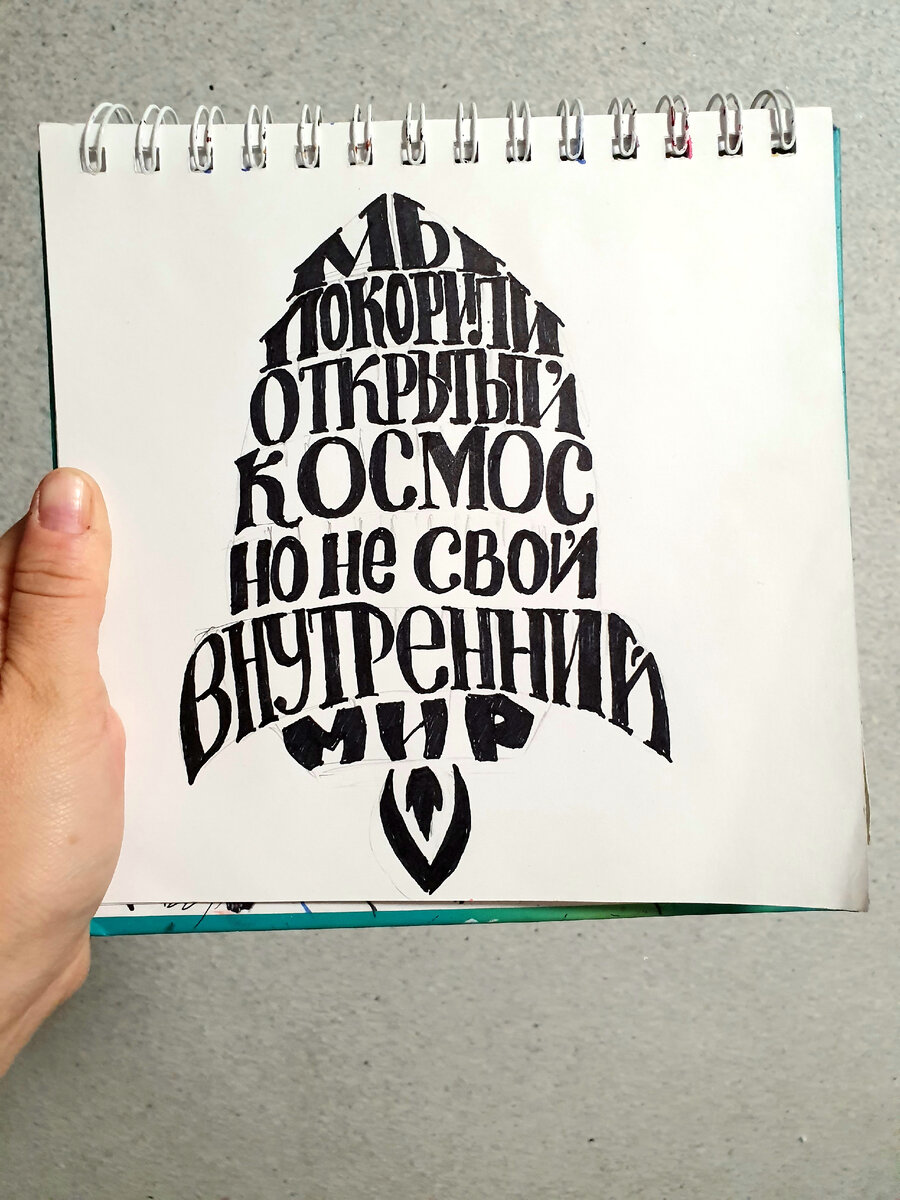 МЫ
ПОКОРИЛИ
ОТКРЫТЫЙ
КОСМОС
НО НЕ СВОЙ
ВНУТРЕННИЙ
МИР